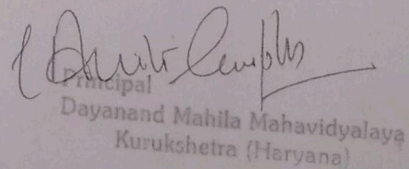 Principal
Dayanand Mahila Mahavidyalaya
Kurukshetra (Haryana)